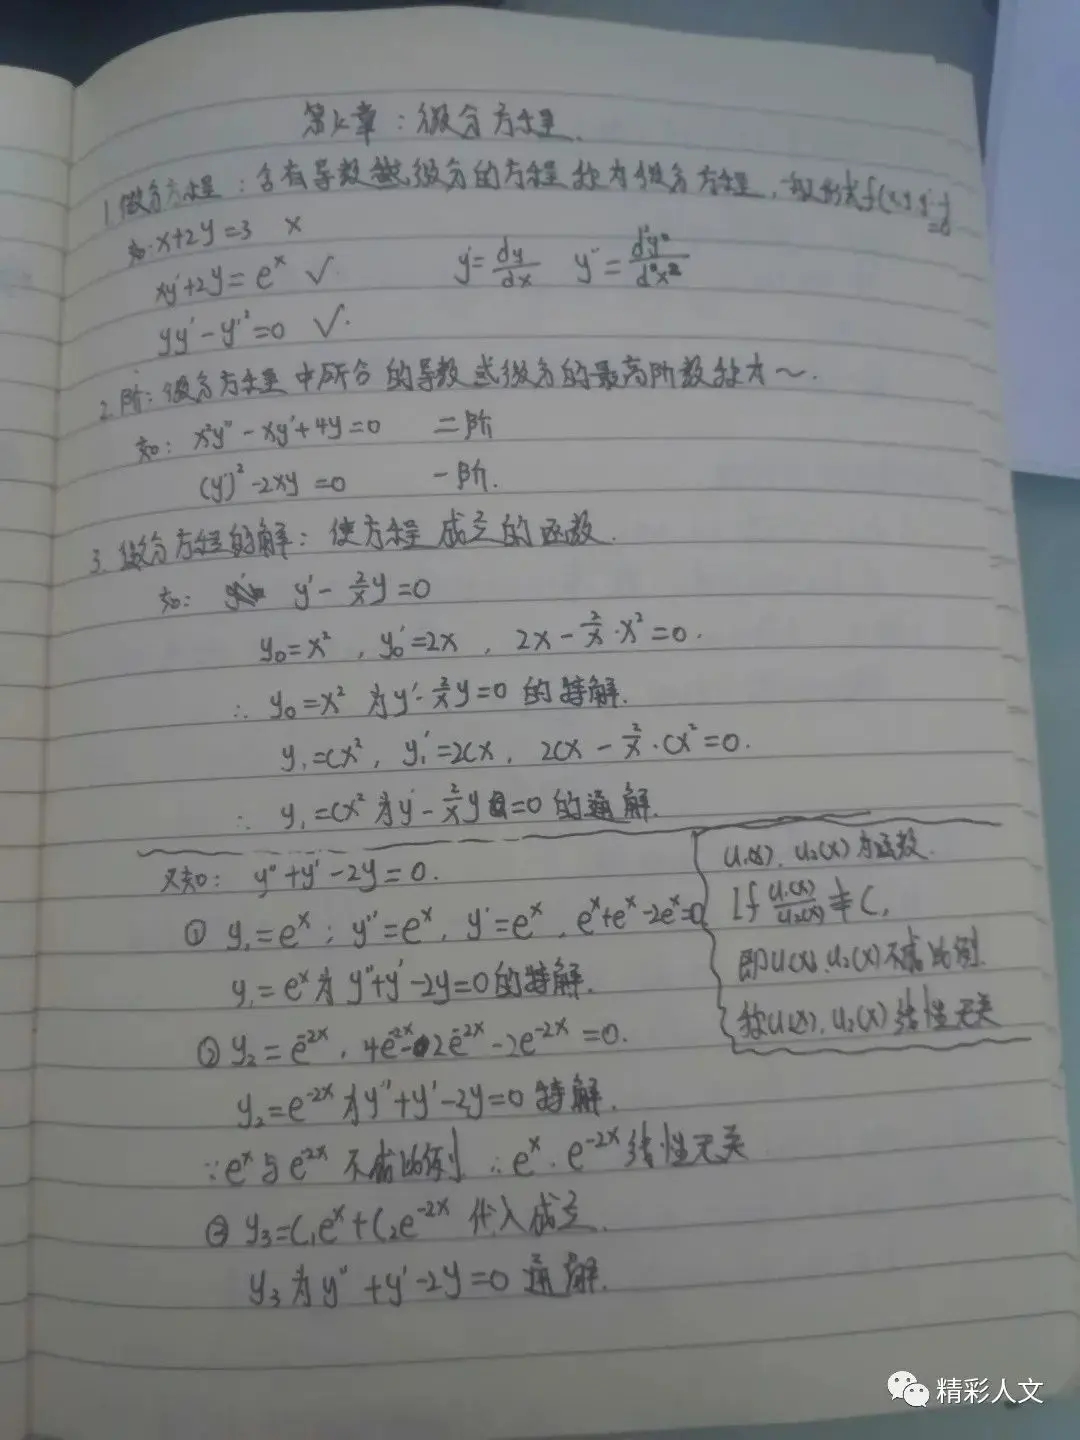 第七章：微分方程.
1.微分方程：含有导数或微分的方程称为微分方程，
如.x+2y=3 ×
xy'+2y=e^x √. y'=dy/dx y''=d²y²/d²x²
yy'-y'²=0 √.
2.阶：微分方程中所含的导数或微分的最高阶数称为～.
如：x²y''-xy'+4y=0 二阶
(y')²-2xy=0 一阶.
3.微分方程的解：使方程成立的函数.
如： y'-2/x y=0
y₀=x²，y₀'=2x，2x-2/x·x²=0.
∴ y₀=x²为y'-2/x y=0的特解.
y₁=Cx²，y₁'=2Cx，2Cx-2/x·Cx²=0.
∴ y₁=Cx²为y'-2/x y=0的通解.
又如：y''+y'-2y=0.
① y₁=e^x；y''=e^x，y'=e^x，e^x+e^x-2e^x=0
y₁=e^x为y''+y'-2y=0的特解.
② y₂=e^-2x，4e^-2x-2e^-2x-2e^-2x=0.
y₂=e^-2x为y''+y'-2y=0特解.
∵e^x与e^-2x不成比例 ∴e^x.e^-2x线性无关
③ y₃=C₁e^x+C₂e^-2x代入成立.
y₃为y''+y'-2y=0通解.
u₁(x).u₂(x)为函数.
If u₁(x)/u₂(x)≠C,
即u₁(x).u₂(x)不成比例.
称u₁(x).u₂(x)线性无关
精彩人文